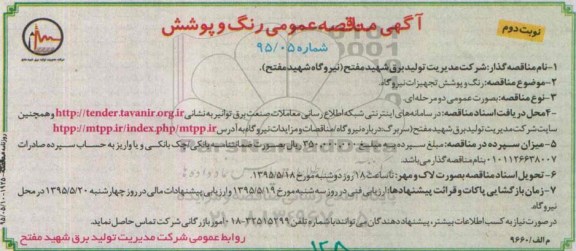 آگهی مناقصه عمومی رنگ و پوشش
نوبت دوم
شماره ۹۵/۰۵
۱-نام مناقصه گذار: شرکت مدیریت تولید برق شهید مفتح (نیروگاه شهید مفتح).
۲-موضوع مناقصه: رنگ و پوشش تجهیزات نیروگاه.
۳-نوع مناقصه: بصورت عمومی دو مرحله‌ای.
۴-محل دریافت اسناد مناقصه: در سامانه‌های اینترنتی شبکه اطلاع رسانی معاملات صنعت برق توانیر به نشانی http://tender.tavanir.org.ir و همچنین
سایت شرکت مدیریت تولید برق شهید مفتح (سربرگ درباره نیروگاه/مناقصات و مزایدات نیروگاه) به آدرس htpp://mtpp.ir/index.php/mtpp.ir
۵-میزان سپرده در مناقصه: مبلغ سپرده ریال بصورت ضمانتنامه بانکی، چک بانکی و یا واریز به حساب سپرده صادرات
۰۱۰۱۱۲۶۶۳۸۰۰۷ بنام مناقصه گذار می باشد.
۶-تحویل اسناد مناقصه بصورت لاک و مهر: تا ساعت ۱۸ روز دوشنبه مورخ ۱۳۹۵/۵/۱۸
۷-زمان بازگشایی پاکات و قرائت پیشنهادها: ارزیابی فنی در روز سه شنبه مورخ ۱۳۹۵/۵/۱۹ و ارزیابی پیشنهادات مالی در روز چهارشنبه ۱۳۹۵/۵/۲۰ در محل
نیروگاه.
در صورت نیاز به کسب اطلاعات بیشتر، پیشنهاد دهندگان می توانند با شماره تلفن ۳۳۵۱۵۲۹۹-۰۱۸ امور بازرگانی شرکت تماس حاصل نمایند.
م الف/۹۶۶۰
روابط عمومی شرکت مدیریت تولید برق شهید مفتح